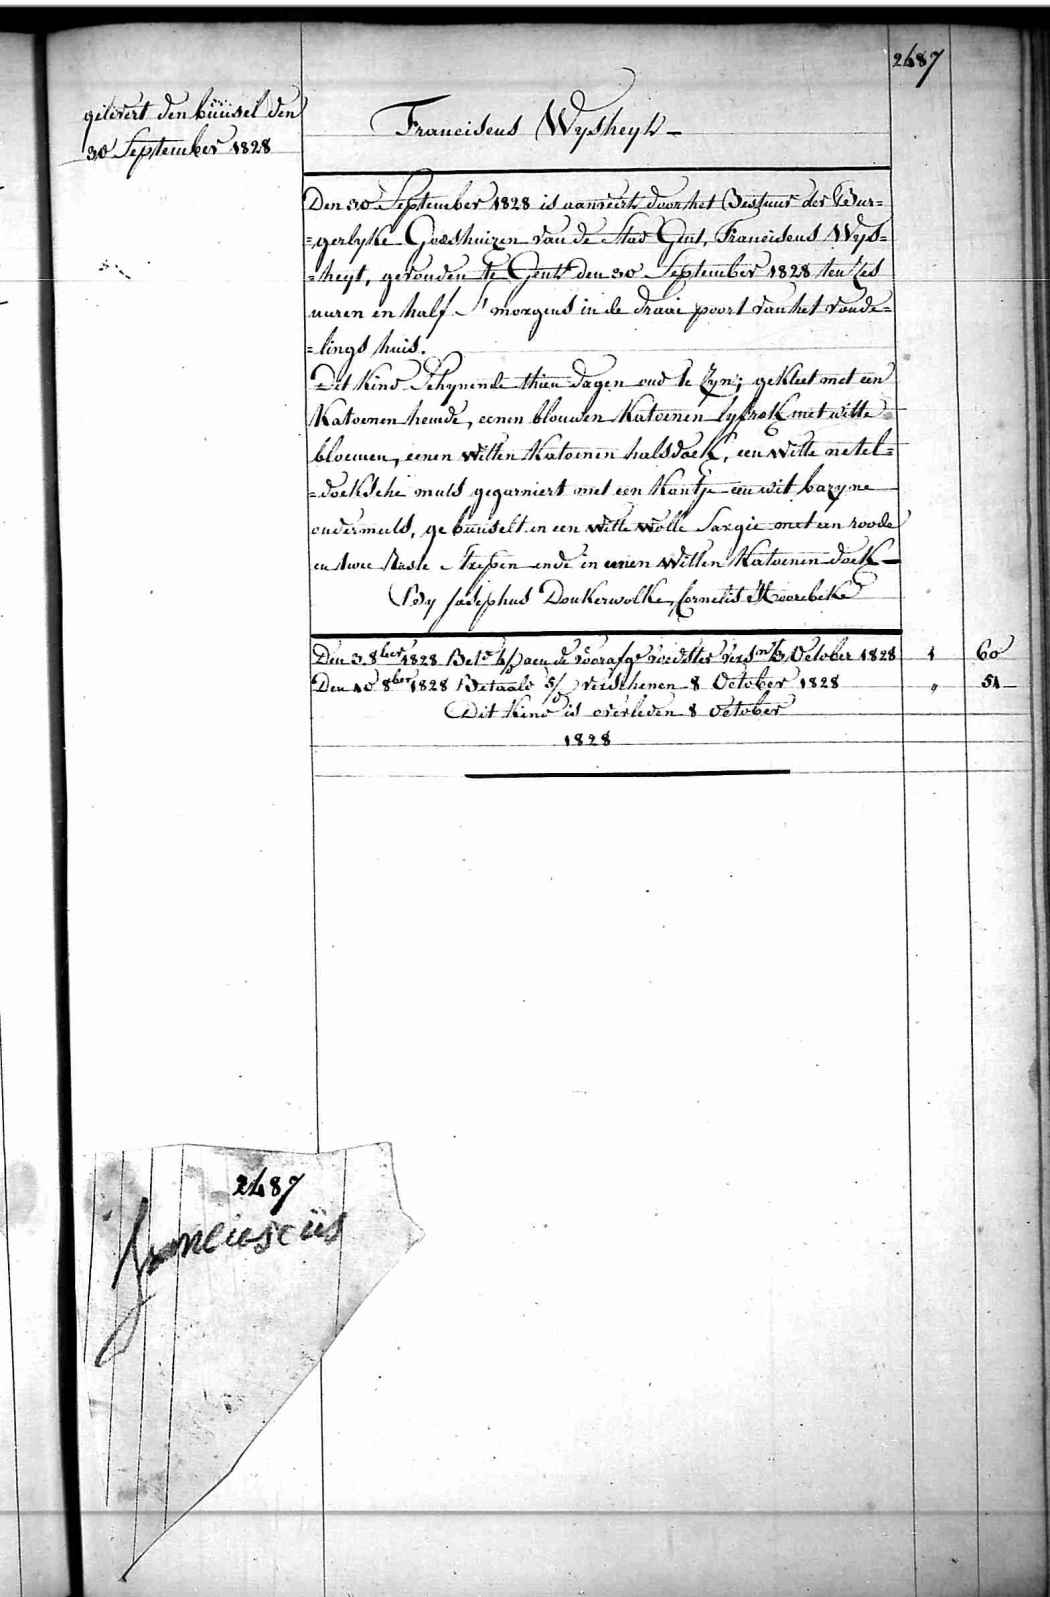 2487
gelevert den buusel den
30 September 1828
Franciscus Wysheyt
Den 30 September 1828 is aanveirt door het Bestuur der Bur=
=gerlyke Godshuizen van de Stad Gent, Franciscus Wys=
=heyt, gevonden te Gent den 30 September 1828 ten zes
uuren en half S'morgens in de draai poort van het vonde=
=lings huis.
Dit kind Schynende thien dagen oud te zyn; gekleet met een
Katoenen hemde, eenen blouwen Katoenen lyfrok met witte
bloemen, eenen witten Katoenen halsdoek, een witte netel=
=doeksche muts gegarniert met een Kantje een wit bazyne
ondermuts, gebuuselt in een witte wolle Sargie met een roode
en twee Strepen ende in eenen witten Katoenen doek
By Josephus Donkerwolke, Cornelis Hoorebeke
Den 3 8ber 1828 Bet.d aen de voorafg.e voedster vers.n 3 October 1828 1 60
Den 10 8ber 1828 Betaald verschenen 8 October 1828 " 51
Dit Kind is overleden 8 October
1828
2487
franciescüs